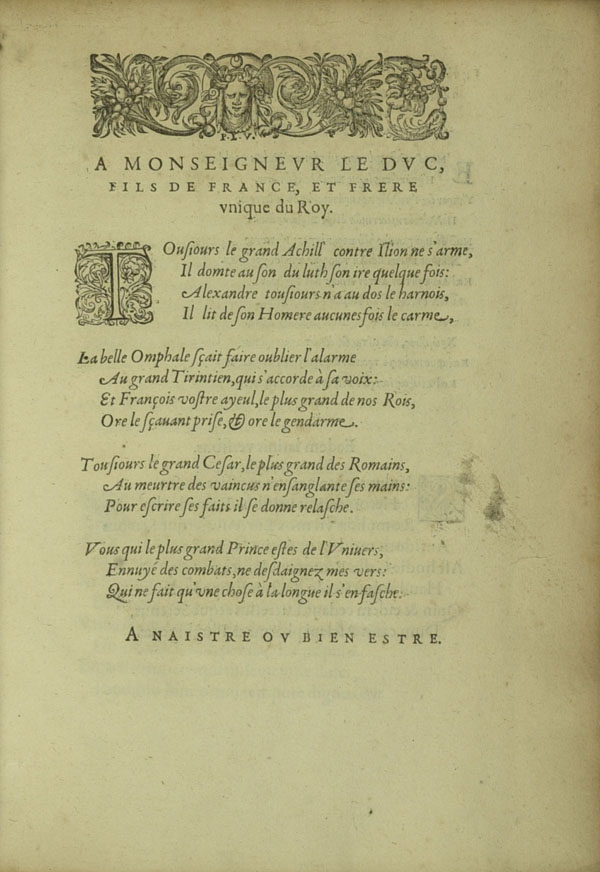 F.L.V.
A MONSEIGNEVR LE DVC,
FILS DE FRANCE, ET FRERE
vnique du Roy.
TOuſiours le grand Achill' contre Ilion ne s'arme,
Il domte au ſon du luth ſon ire quelque fois:
Alexandre touſiours n'a au dos le harnois,
Il lit de ſon Homere aucunes fois le carme,
La belle Omphale ſçait faire oublier l'alarme
Au grand Tirintien, qui s'accorde à ſa voix:
Et François voſtre ayeul, le plus grand de nos Rois,
Ore le ſçauant priſe, & ore le gendarme.
Touſiours le grand Ceſar, le plus grand des Romains,
Au meurtre des vaincus n'enſanglante ſes mains:
Pour eſcrire ſes faits il ſe donne relaſche.
Vous qui le plus grand Prince eſtes de l'Vniuers,
Ennuyé des combats, ne deſdaignez mes vers:
Qui ne fait qu'vne choſe à la longue il s'en faſche.
A NAISTRE OV BIEN ESTRE.